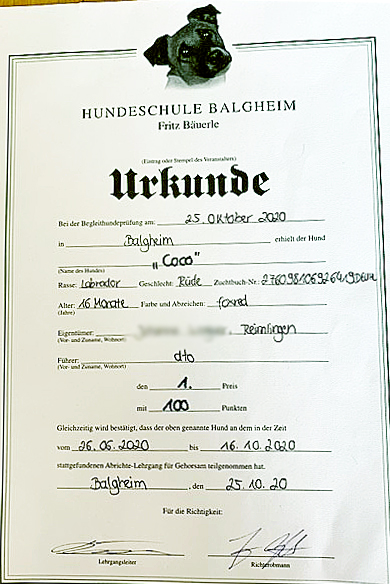 HUNDESCHULE BALGHEIM
Fritz Bäuerle
(Eintrag oder Stempel des Veranstalters)
Urkunde
Bei der Begleithundeprüfung am: 25. Oktober 2020
in Balgheim erhielt der Hund
"Coco"
(Name des Hundes)
Rasse: Labrador Geschlecht: Rüde Zuchtbuch-Nr.:
Alter: 16 Monate Farbe und Abzeichen: foxred
(Jahre)
Eigentümer: Reimlingen
(Vor- und Zuname, Wohnort)
Führer: dto
(Vor- und Zuname, Wohnort)
den 1. Preis
mit 100 Punkten
Gleichzeitig wird bestätigt, dass der oben genannte Hund an dem in der Zeit
vom 26.06.2020 bis 16.10.2020
stattgefundenen Abrichte-Lehrgang für Gehorsam teilgenommen hat.
Balgheim, den 25.10.20
Für die Richtigkeit:
Lehrgangsleiter Richterobmann